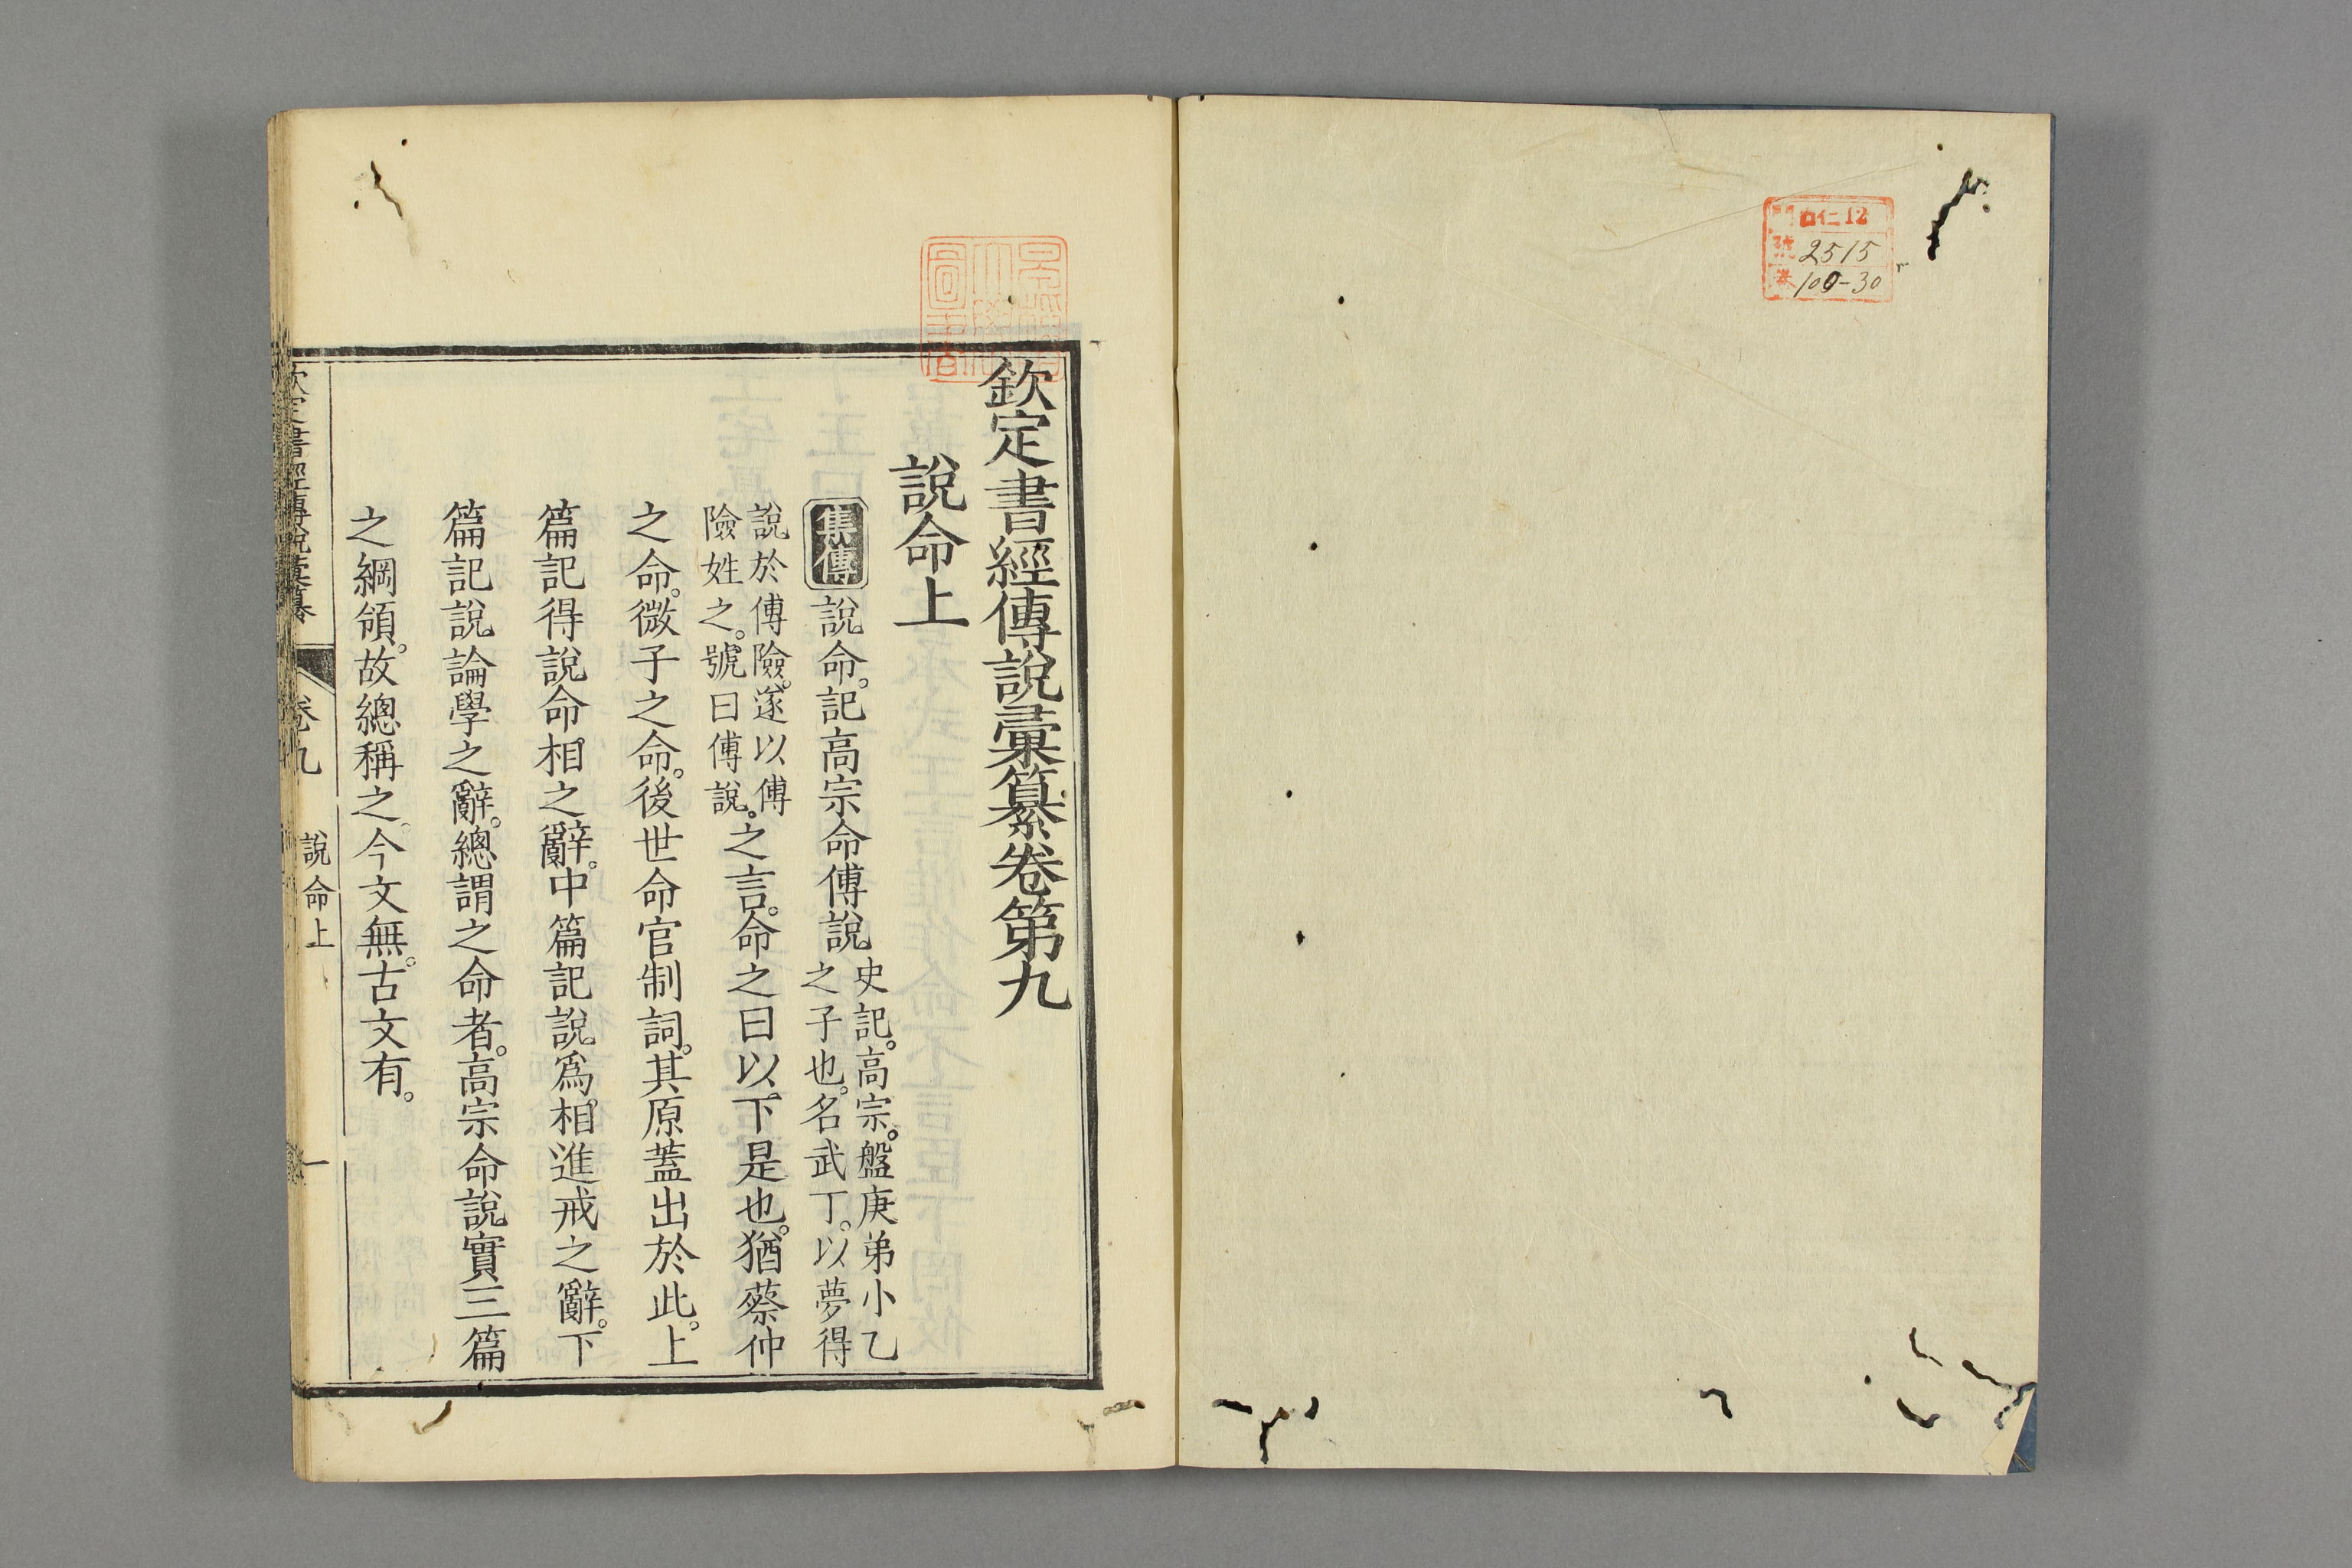 門 仁12
號 2515
巻 100-30
欽定書經傳說彙纂卷第九
說命上
集傳 說命。記高宗命傅說 史記。高宗。盤庚弟小乙
之子也。名武丁。以夢得
說於傅險。遂以傅
險姓之。號曰傅說。
之言。命之曰以下是也。猶蔡仲
之命。微子之命。後世命官制詞。其原蓋出於此。上
篇記得說命相之辭。中篇記說爲相進戒之辭。下
篇記說論學之辭。總謂之命者。高宗命說實三篇
之綱領。故總稱之。今文無。古文有。
欽定書經傳說彙纂 卷九 說命上 一